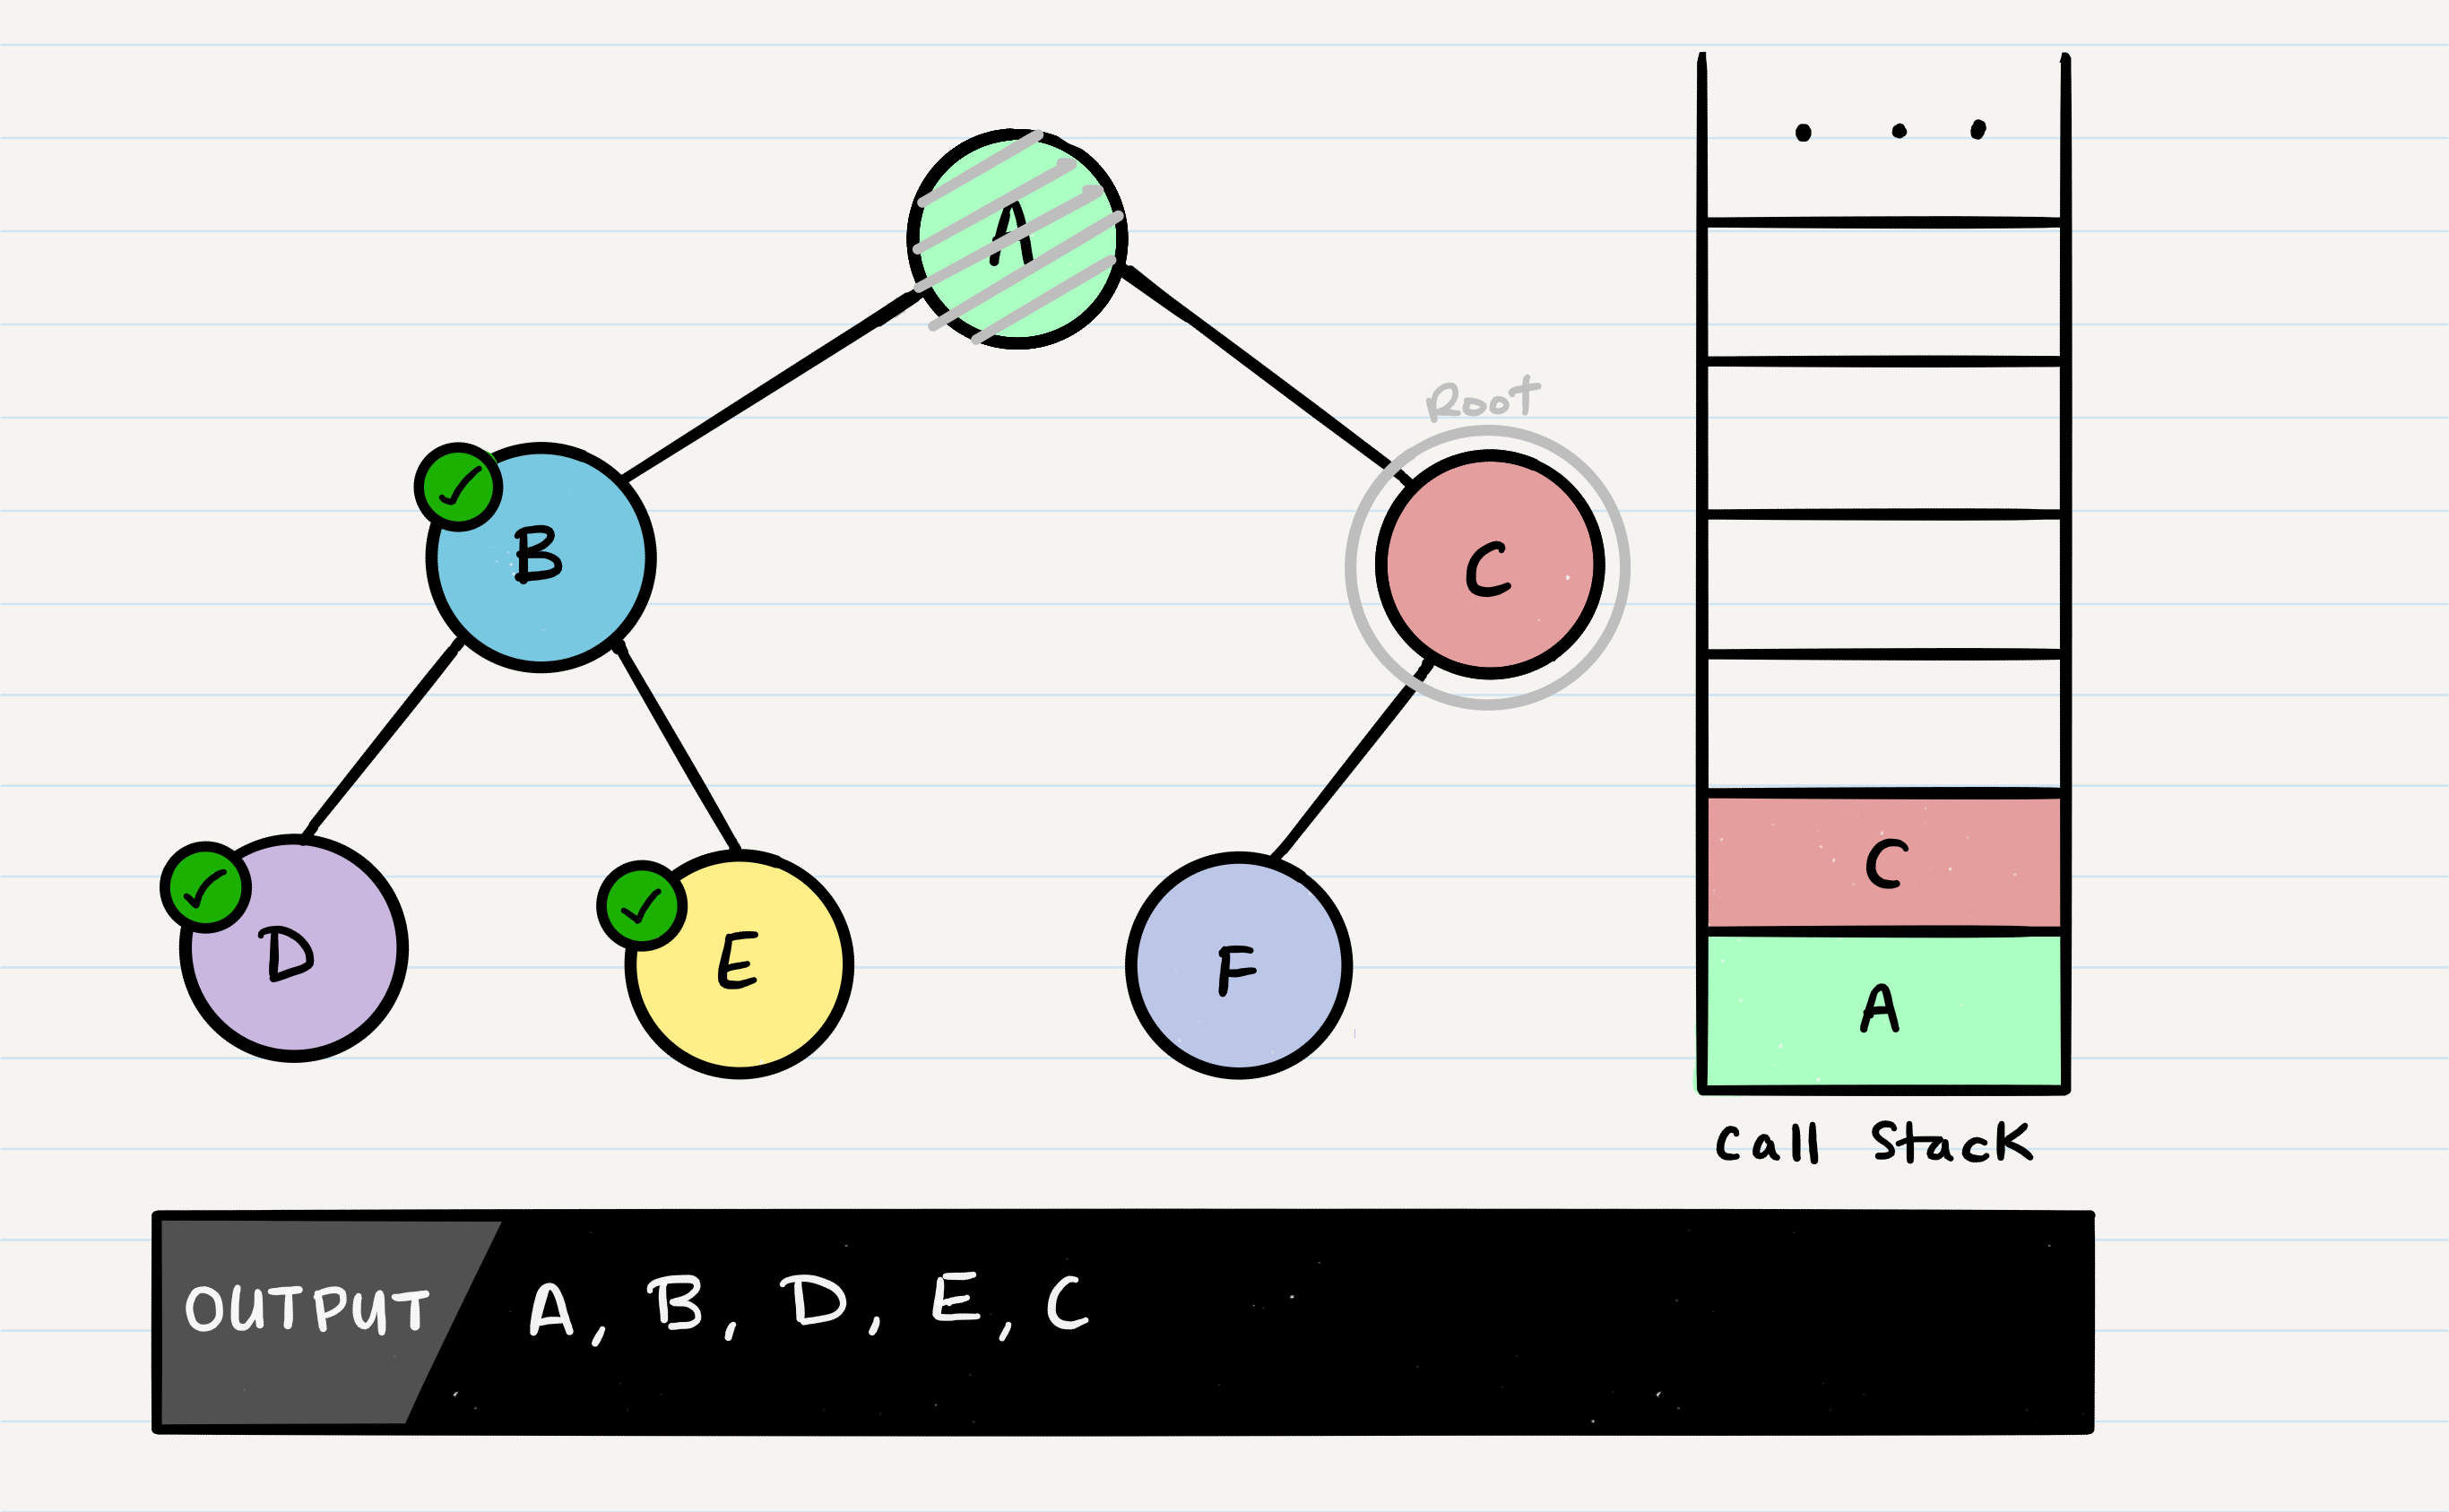 A
Root
B
C
D
E
F
. . .
C
A
Call Stack
OUTPUT
A, B, D, E, C